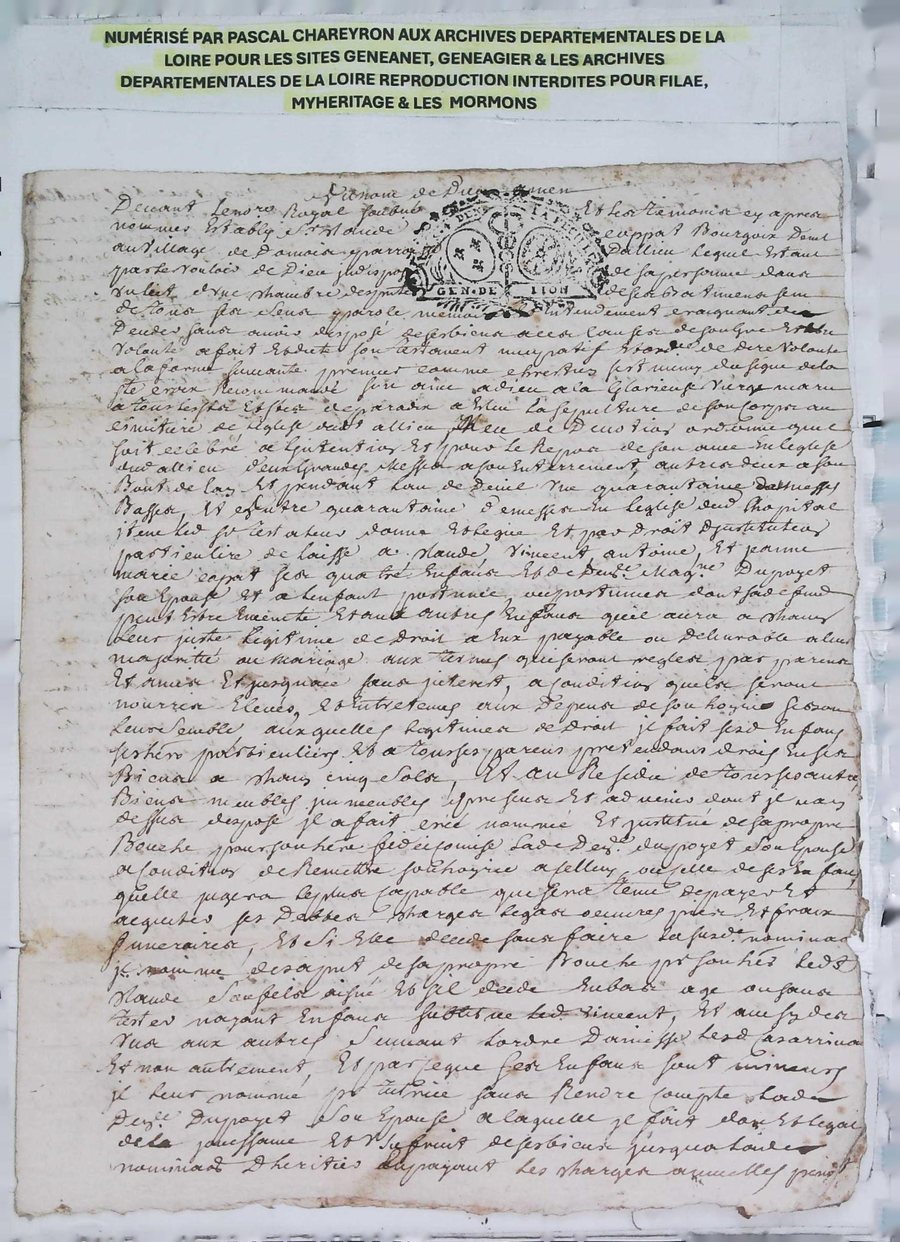 NUMÉRISÉ PAR PASCAL CHAREYRON AUX ARCHIVES DEPARTEMENTALES DE LA
LOIRE POUR LES SITES GENEANET, GENEAGIER & LES ARCHIVES
DEPARTEMENTALES DE LA LOIRE REPRODUCTION INTERDITES POUR FILAE,
MYHERITAGE & LES MORMONS
Au nom de Dieu amen
Devant Lenore Royal Et les temoins cy apres
nommes Estably Sr Claude cappat Bourgois
au village de dallieu Lequel Estant
par le vouloir de Dieu de sa personne dans
GEN. DE LION
un lict d'une chambre de ses Batimens
de tous ses sens parole memoire Entendement craignant de
voir disposé de ses biens a ces causes de son gre Et
volonté a fait Et dicte son testament nuncupatif Et de dere volonté
a la forme suivante premier comme chrestien s'est muny du signe de la
Ste croix Recommandé son ame a dieu a la Glorieuse Vierge marie
a Esleu La sepulture de son Corps au
cimitiere de Leglise dud allieu de Devotion ordonne que
soit celebré a Lintention Et pour le Repos de son ame En leglise
dud allieu deux Grandes Messes a son Enterrement, autres deux a son
Bout de Lan Et pendant Lan de Deuil une quarantaine de messes
Basses, Et autre quarantaine de messes En Leglise dud hopital
item led sr Testateur donne Et legue Et par Droit d'institution
particuliere de laisse a Claude Vincent antoine, Et jeanne
marie cappat ses quatre Enfans Et de Dem.lle Mag.ne Dupoyet
son Epouse Et a Lenfant postume, ou postumes dont sade
peut Estre Enceinte Et aux autres Enfans quil aura a chacun
Leur juste Legitime de droit a Eux payable ou delivrable a leur
majorité ou mariage aux termes qui seront regles par parens
Et amis Et jusquace sans interest, a condition quels seront
nourris Eleves, Et Entretenus aux Depens de son hoyrie
aux quelles Legitimes de Droit il fait sesd Enfans
ses hers particuliers Et a tous ses parens pretendans droits En ses
Biens a chacun cinq sols, Et au Residu de tous ses autres
Biens meubles immeubles presens Et advenir dont il na cy
dessus disposé il a fait créé nommé Et institué de sa propre
Bouche pour son here fideicomise Lade Dem.lle dupoyet Son Epouse
a condition de Remettre son hoyrie a celluy ou celle de ses Enfans
quelle jugera Le plus Capable que sera tenu de payer Et
acquiter ses Debtes charges Legas oeuvres pies Et fraix
funeraires, Et si Elle decede sans faire La susd.e nomination
il nomme desapnt de sa propre Bouche pr son here Led Sr
Claude Son fils aisné Et sil decede En bas age ou sans
tester nayant Enfans substitue Led. Vincent, Et ainsy des
uns aux autres Suivant Lordre
Et non autrement, Et parce que ses Enfans sont mineurs
il leur nomme pr tutrice sans Rendre Compte Lade
Dem.lle Dupoyet Son Epouse a laquelle il fait don Et legat
de la jouissance Et usufruit de ses biens jusqua Lade
nominaon Dheritier En payant Les charges annuelles